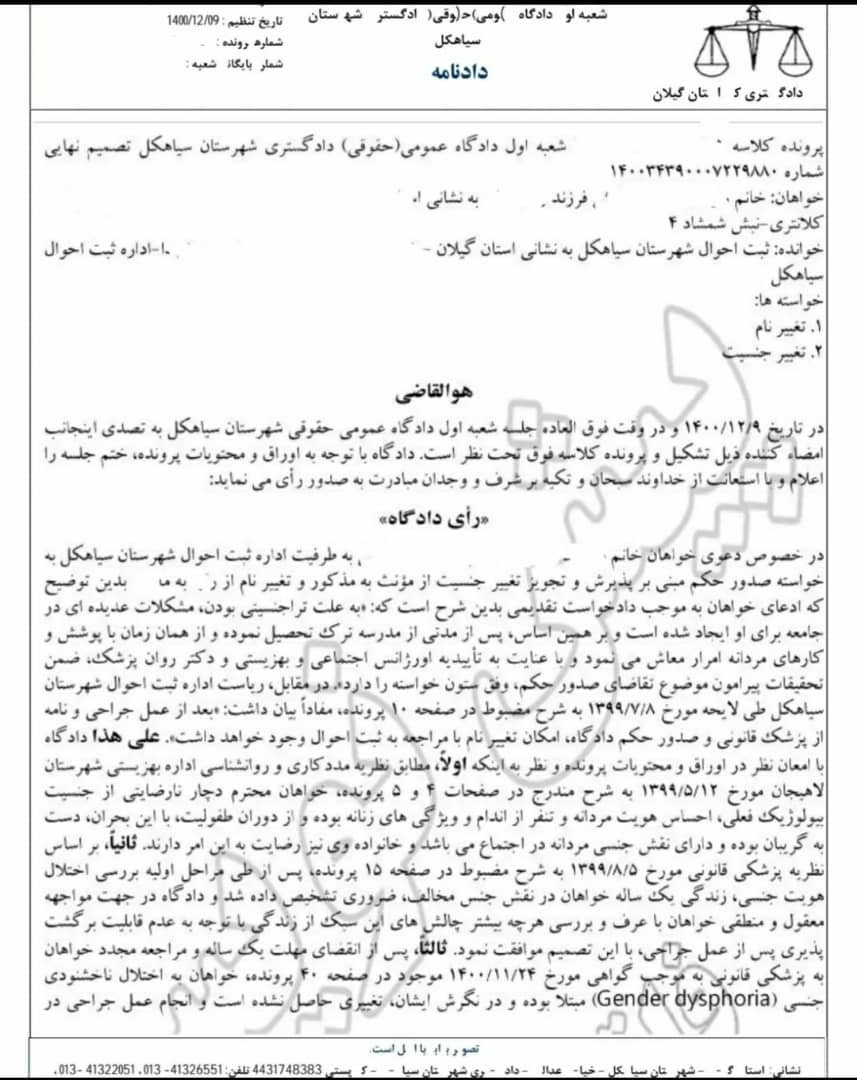 شعبه او دادگاه ومی(ح(وقی( ادگستر شه ستان
سیاهکل
دادنامه
تاریخ تنظیم : 1400/12/09
شماره رونده :
شمار بایگانی شعبه :
دادگ تری ک ا تان گیلان
پرونده کلاسه شعبه اول دادگاه عمومی(حقوقی) دادگستری شهرستان سیاهکل تصمیم نهایی
شماره ۱۴۰۰۳۴۳۹۰۰۰۷۲۲۹۸۸۰
خواهان: خانم فرزند به نشانی
کلانتری-نبش شمشاد ۴
خوانده: ثبت احوال شهرستان سیاهکل به نشانی استان گیلان – ا-اداره ثبت احوال
سیاهکل
خواسته ها:
۱. تغییر نام
۲. تغییر جنسیت
هوالقاضی
در تاریخ ۱۴۰۰/۱۲/۹ و در وقت فوق العاده جلسه شعبه اول دادگاه عمومی حقوقی شهرستان سیاهکل به تصدی اینجانب
امضاء کننده ذیل تشکیل و پرونده کلاسه فوق تحت نظر است. دادگاه با توجه به اوراق و محتویات پرونده، ختم جلسه را
اعلام و با استعانت از خداوند سبحان و تکیه بر شرف و وجدان مبادرت به صدور رأی می نماید:
«رأی دادگاه»
در خصوص دعوی خواهان خانم به طرفیت اداره ثبت احوال شهرستان سیاهکل به
خواسته صدور حکم مبنی بر پذیرش و تجویز تغییر جنسیت از مؤنث به مذکور و تغییر نام از به بدین توضیح
که ادعای خواهان به موجب دادخواست تقدیمی بدین شرح است که: «به علت تراجنسیتی بودن، مشکلات عدیده ای در
جامعه برای او ایجاد شده است و بر همین اساس، پس از مدتی از مدرسه ترک تحصیل نموده و از همان زمان با پوشش و
کارهای مردانه امرار معاش می نمود و با عنایت به تأییدیه اورژانس اجتماعی و بهزیستی و دکتر روان پزشک، ضمن
تحقیقات پیرامون موضوع تقاضای صدور حکم، وفق ستون خواسته را دارد». در مقابل، ریاست اداره ثبت احوال شهرستان
سیاهکل طی لایحه مورخ ۱۳۹۹/۷/۸ به شرح مضبوط در صفحه ۱۰ پرونده، مفاداً بیان داشت: «بعد از عمل جراحی و نامه
از پزشک قانونی و صدور حکم دادگاه، امکان تغییر نام با مراجعه به ثبت احوال وجود خواهد داشت». علی هذا دادگاه
با امعان نظر در اوراق و محتویات پرونده و نظر به اینکه اولاً، مطابق نظریه مددکاری و روانشناسی اداره بهزیستی شهرستان
لاهیجان مورخ ۱۳۹۹/۵/۱۲ به شرح مندرج در صفحات ۴ و ۵ پرونده، خواهان محترم دچار نارضایتی از جنسیت
بیولوژیک فعلی، احساس هویت مردانه و تنفر از اندام و ویژگی های زنانه بوده و از دوران طفولیت، با این بحران، دست
به گریبان بوده و دارای نقش جنسی مردانه در اجتماع می باشد و خانواده وی نیز رضایت به این امر دارند. ثانیاً، بر اساس
نظریه پزشکی قانونی مورخ ۱۳۹۹/۸/۵ به شرح مضبوط در صفحه ۱۵ پرونده، پس از طی مراحل اولیه بررسی اختلال
هویت جنسی، زندگی یک ساله خواهان در نقش جنس مخالف، ضروری تشخیص داده شد و دادگاه در جهت مواجهه
معقول و منطقی خواهان با عرف و بررسی هرچه بیشتر چالش های این سبک از زندگی با توجه به عدم قابلیت برگشت
پذیری پس از عمل جراحی، با این تصمیم موافقت نمود. ثالثاً، پس از انقضای مهلت یک ساله و مراجعه مجدد خواهان
به پزشکی قانونی به موجب گواهی مورخ ۱۴۰۰/۱۱/۲۴ موجود در صفحه ۴۰ پرونده، خواهان به اختلال ناخشنودی
جنسی (Gender dysphoria) مبتلا بوده و در نگرش ایشان، تغییری حاصل نشده است و انجام عمل جراحی در
تصو ر برابر با ا ل است.
نشانی: استا گ - شهر تان سیا کل - خیا عدال - داد ری شهر تان سیا - ک پستی 4431748383 تلفن: 41326551- 013 ، 41322051 -013 ،